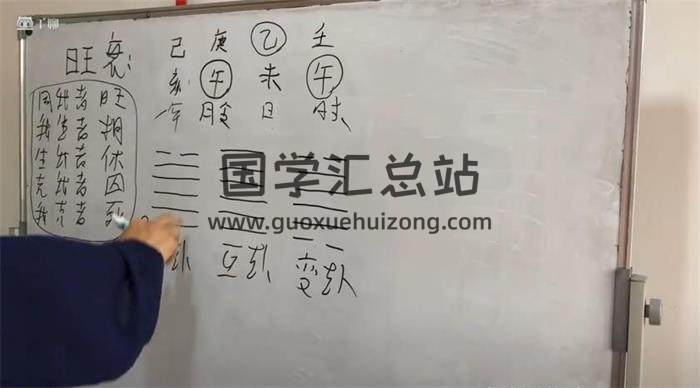 旺 衰:
己 庚 乙 壬
亥 午 未 午
年 月 日 时
同我者 旺
我生者 相
生我者 休
克我者 囚
我克者 死
国学汇总站
www.guoxuehuizong.com
卦 互卦 变卦